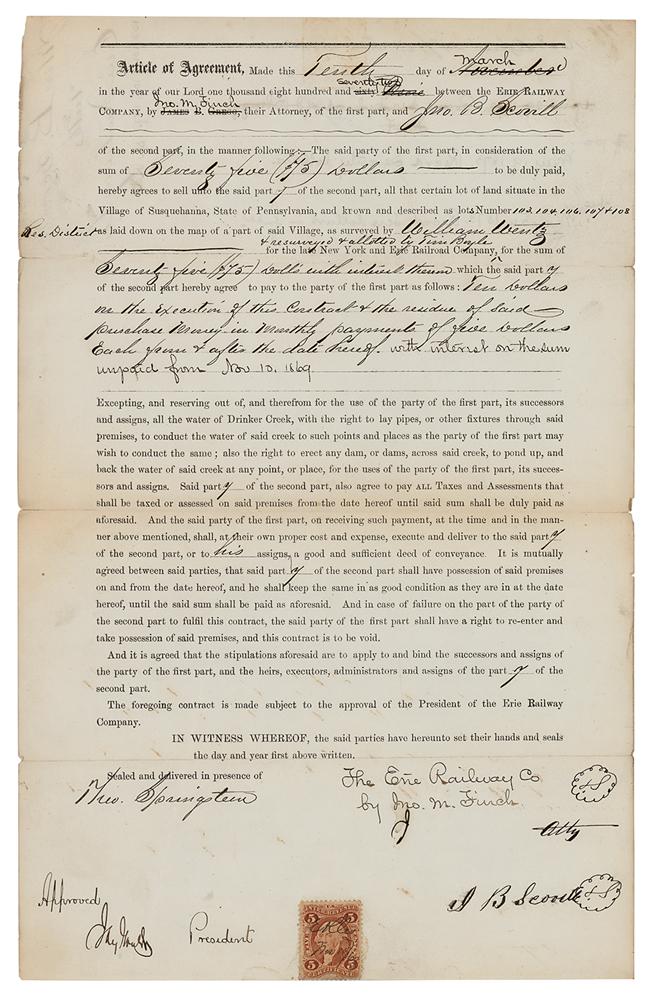 March
Article of Agreement, Made this Tenth day of November
Seventy two
in the year of our Lord one thousand eight hundred and sixty between the Erie Railway
Jno. M. Finch
Company, by James B. Gregg, their Attorney, of the first part, and Jno. B. Scovill
of the second part, in the manner following:—The said party of the first part, in consideration of the
sum of Seventy five (75) Dollars to be duly paid,
hereby agrees to sell unto the said part y of the second part, all that certain lot of land situate in the
Village of Susquehanna, State of Pennsylvania, and known and described as lots Number 103, 104, 106, 107 & 108
Res. District as laid down on the map of a part of said Village, as surveyed by William Wentz
& resurveyed & allotted by Tim Boyle
for the late New York and Erie Railroad Company, for the sum of
Seventy five (75) Dolls with interest thereon which the said part y
of the second part hereby agree to pay to the party of the first part as follows: Ten Dollars
on the Execution of this Contract & the residue of said
purchase Money in Monthly payments of five Dollars
Each from & after the date hereof. with interest on the sum
unpaid from Nov 10. 1869
Excepting, and reserving out of, and therefrom for the use of the party of the first part, its successors
and assigns, all the water of Drinker Creek, with the right to lay pipes, or other fixtures through said
premises, to conduct the water of said creek to such points and places as the party of the first part may
wish to conduct the same; also the right to erect any dam, or dams, across said creek, to pond up, and
back the water of said creek at any point, or place, for the uses of the party of the first part, its succes-
sors and assigns. Said part y of the second part, also agree to pay ALL Taxes and Assessments that
shall be taxed or assessed on said premises from the date hereof until said sum shall be duly paid as
aforesaid. And the said party of the first part, on receiving such payment, at the time and in the man-
ner above mentioned, shall, at their own proper cost and expense, execute and deliver to the said part y
of the second part, or to his assigns, a good and sufficient deed of conveyance. It is mutually
agreed between said parties, that said part y of the second part shall have possession of said premises
on and from the date hereof, and he shall keep the same in as good condition as they are in at the date
hereof, until the said sum shall be paid as aforesaid. And in case of failure on the part of the party of
the second part to fulfil this contract, the said party of the first part shall have a right to re-enter and
take possession of said premises, and this contract is to be void.
And it is agreed that the stipulations aforesaid are to apply to and bind the successors and assigns of
the party of the first part, and the heirs, executors, administrators and assigns of the part y of the
second part.
The foregoing contract is made subject to the approval of the President of the Erie Railway
Company.
IN WITNESS WHEREOF, the said parties have hereunto set their hands and seals
the day and year first above written.
Sealed and delivered in presence of
The Erie Railway Co LS
Theo. Springstein
by Jno. M. Finch
Atty
J B Scovill LS
Approved
Jay Gould President
5 5
CERTIFICATE